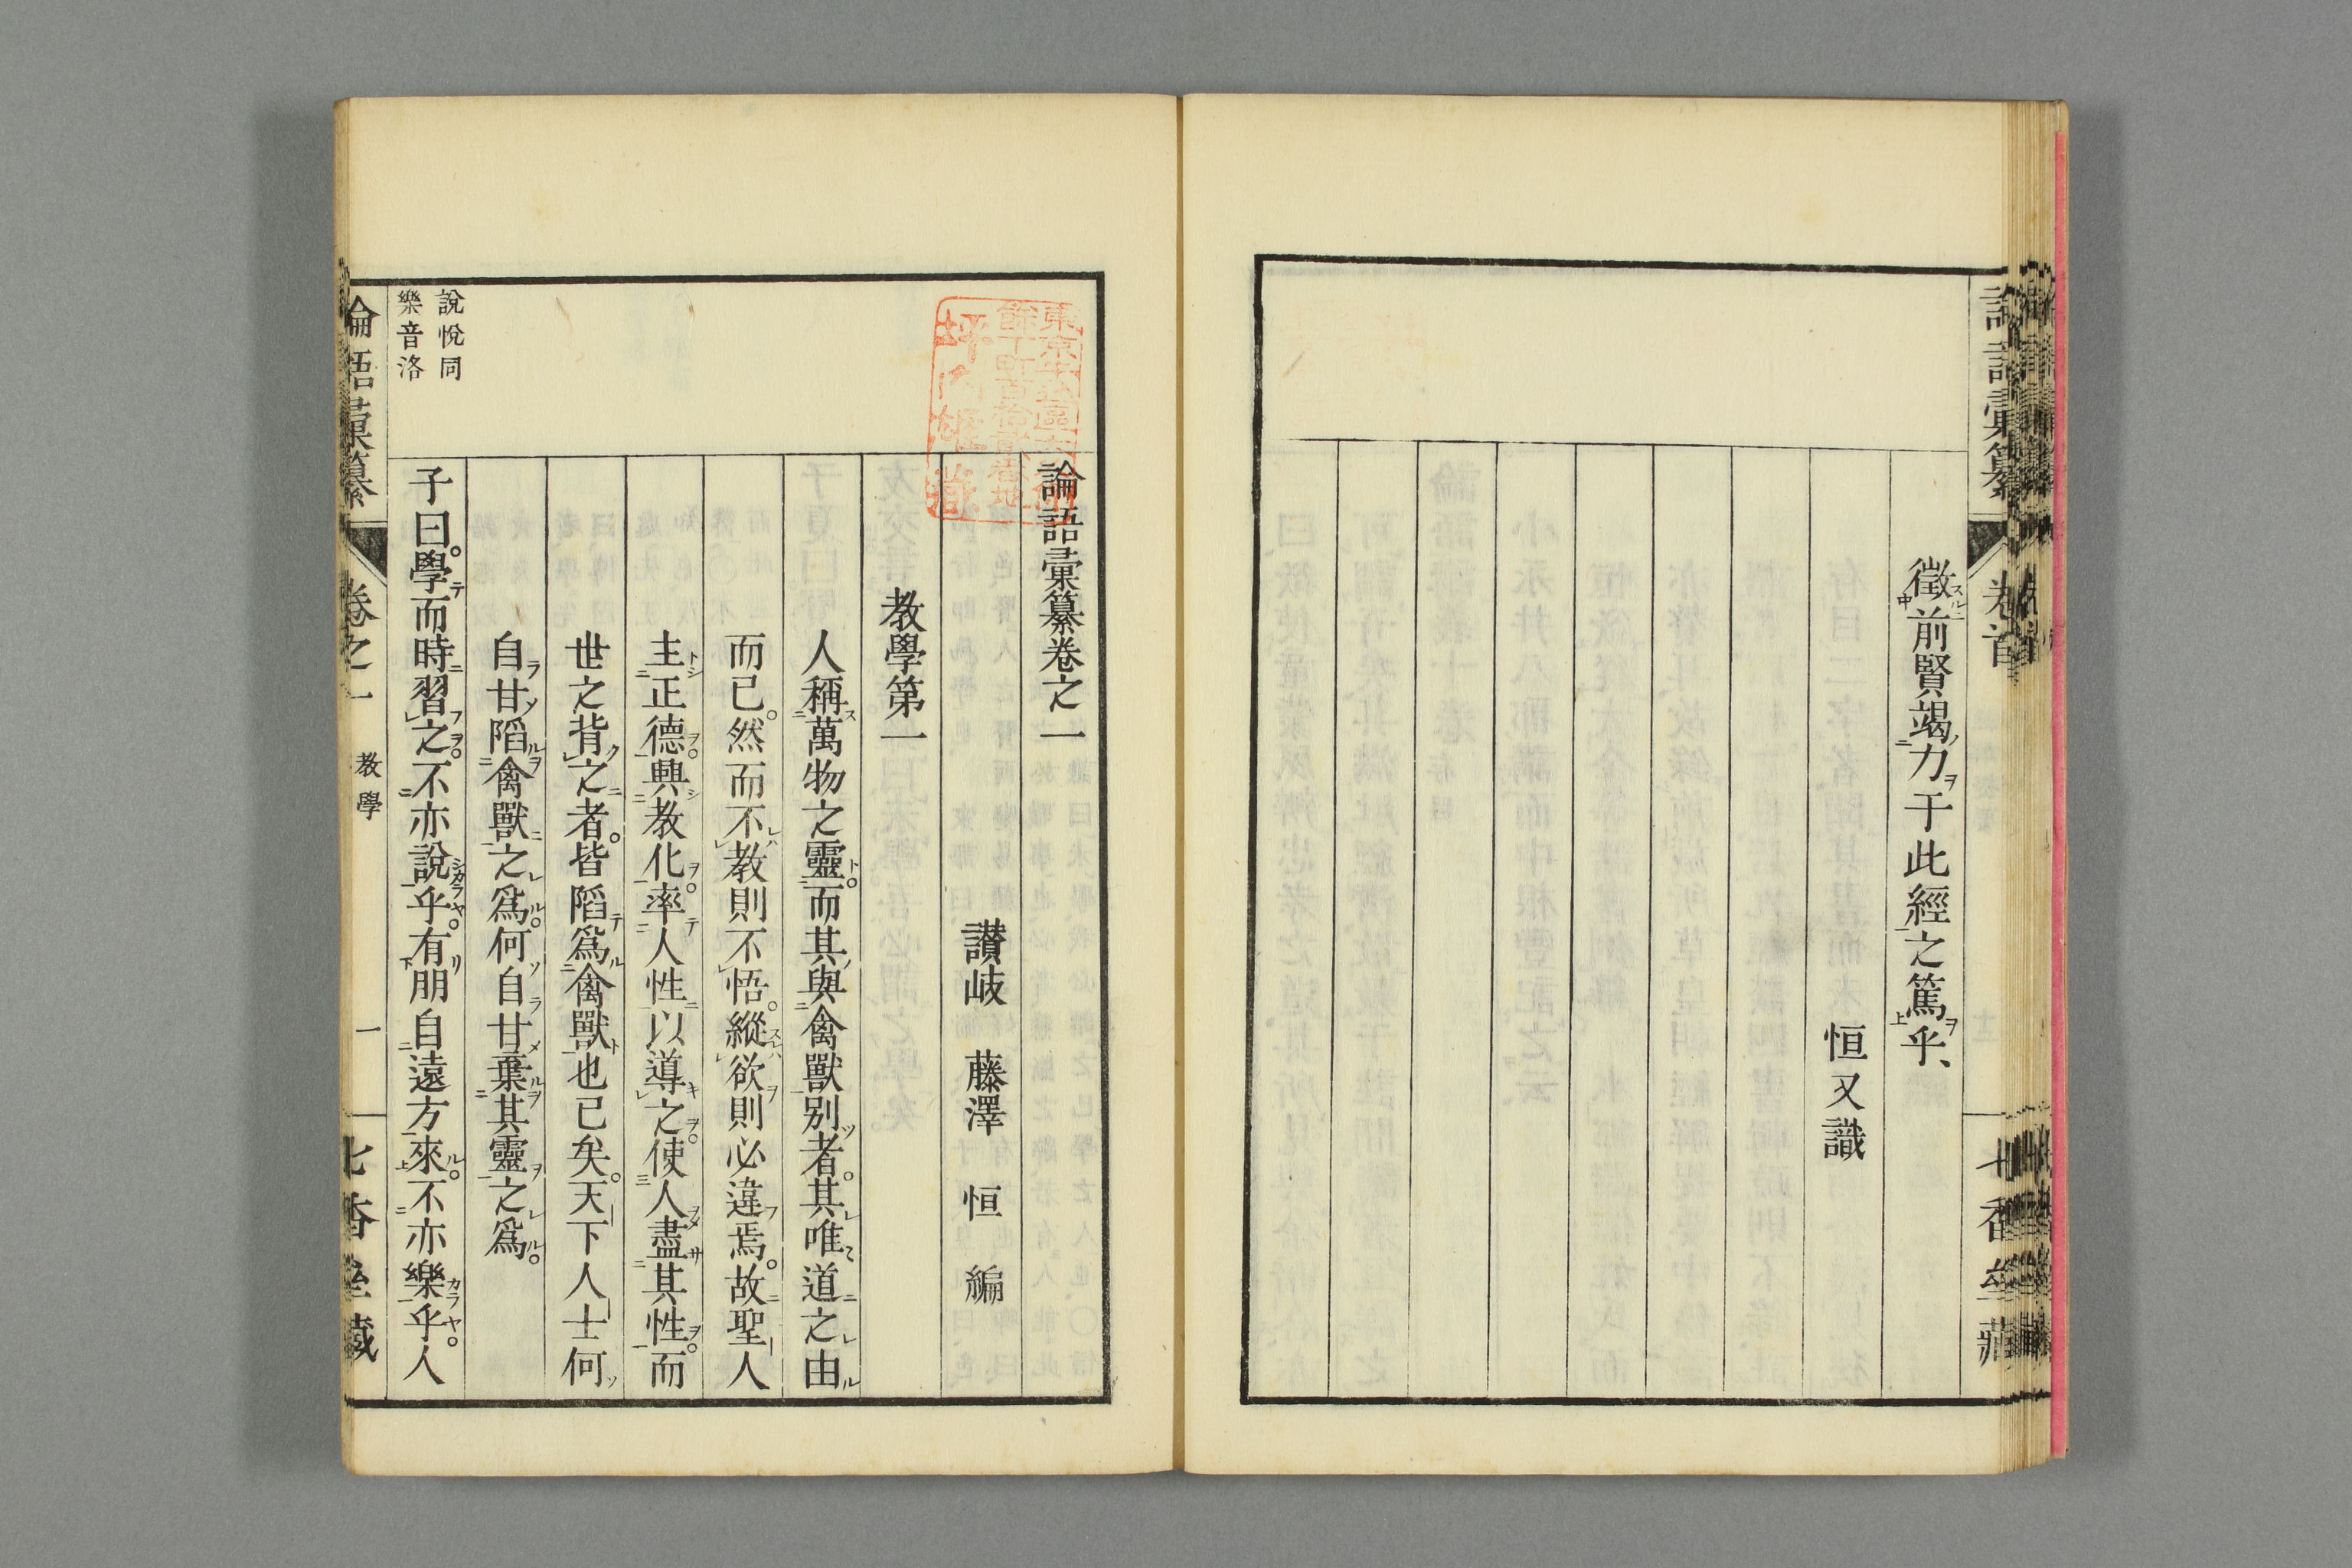 徵前賢竭力于此經之篤乎、
恒又識
論語彙纂
卷首
七香
論語彙纂卷之一
讃岐 藤澤 恒 編
教學第一
人稱萬物之靈。而其與禽獸別者。其唯道之由
而已。然而不教則不悟。縱欲則必違焉。故聖人
主正德。興教化。率人性以導之。使人盡其性。而
世之背之者。皆陷爲禽獸也已矣。天下人士何
自甘陷禽獸之爲。何自甘棄其靈之爲。
説悅同
樂音洛
子曰。學而時習之。不亦説乎。有朋自遠方來。不亦樂乎。人
論語彙纂
卷之一
教學
一
七香
藏